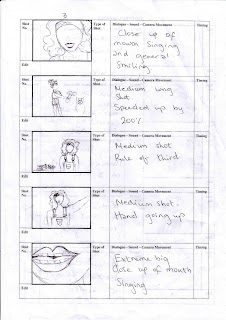 3
Shot No.
Type of Shot
Dialogue - Sound - Camera Movement
Timing
Close up of
mouth singing
and general
smiling
Edit
Shot No.
Type of Shot
Dialogue - Sound - Camera Movement
Timing
Medium long
shot
Speeded up by
200%
Edit
Shot No.
Type of Shot
Dialogue - Sound - Camera Movement
Timing
Medium shot
Rule of third
Edit
Shot No.
Type of Shot
Dialogue - Sound - Camera Movement
Timing
Medium shot.
Hand going up
Edit
Shot No.
Type of Shot
Dialogue - Sound - Camera Movement
Timing
Extreme big
close up of mouth
Singing
Edit